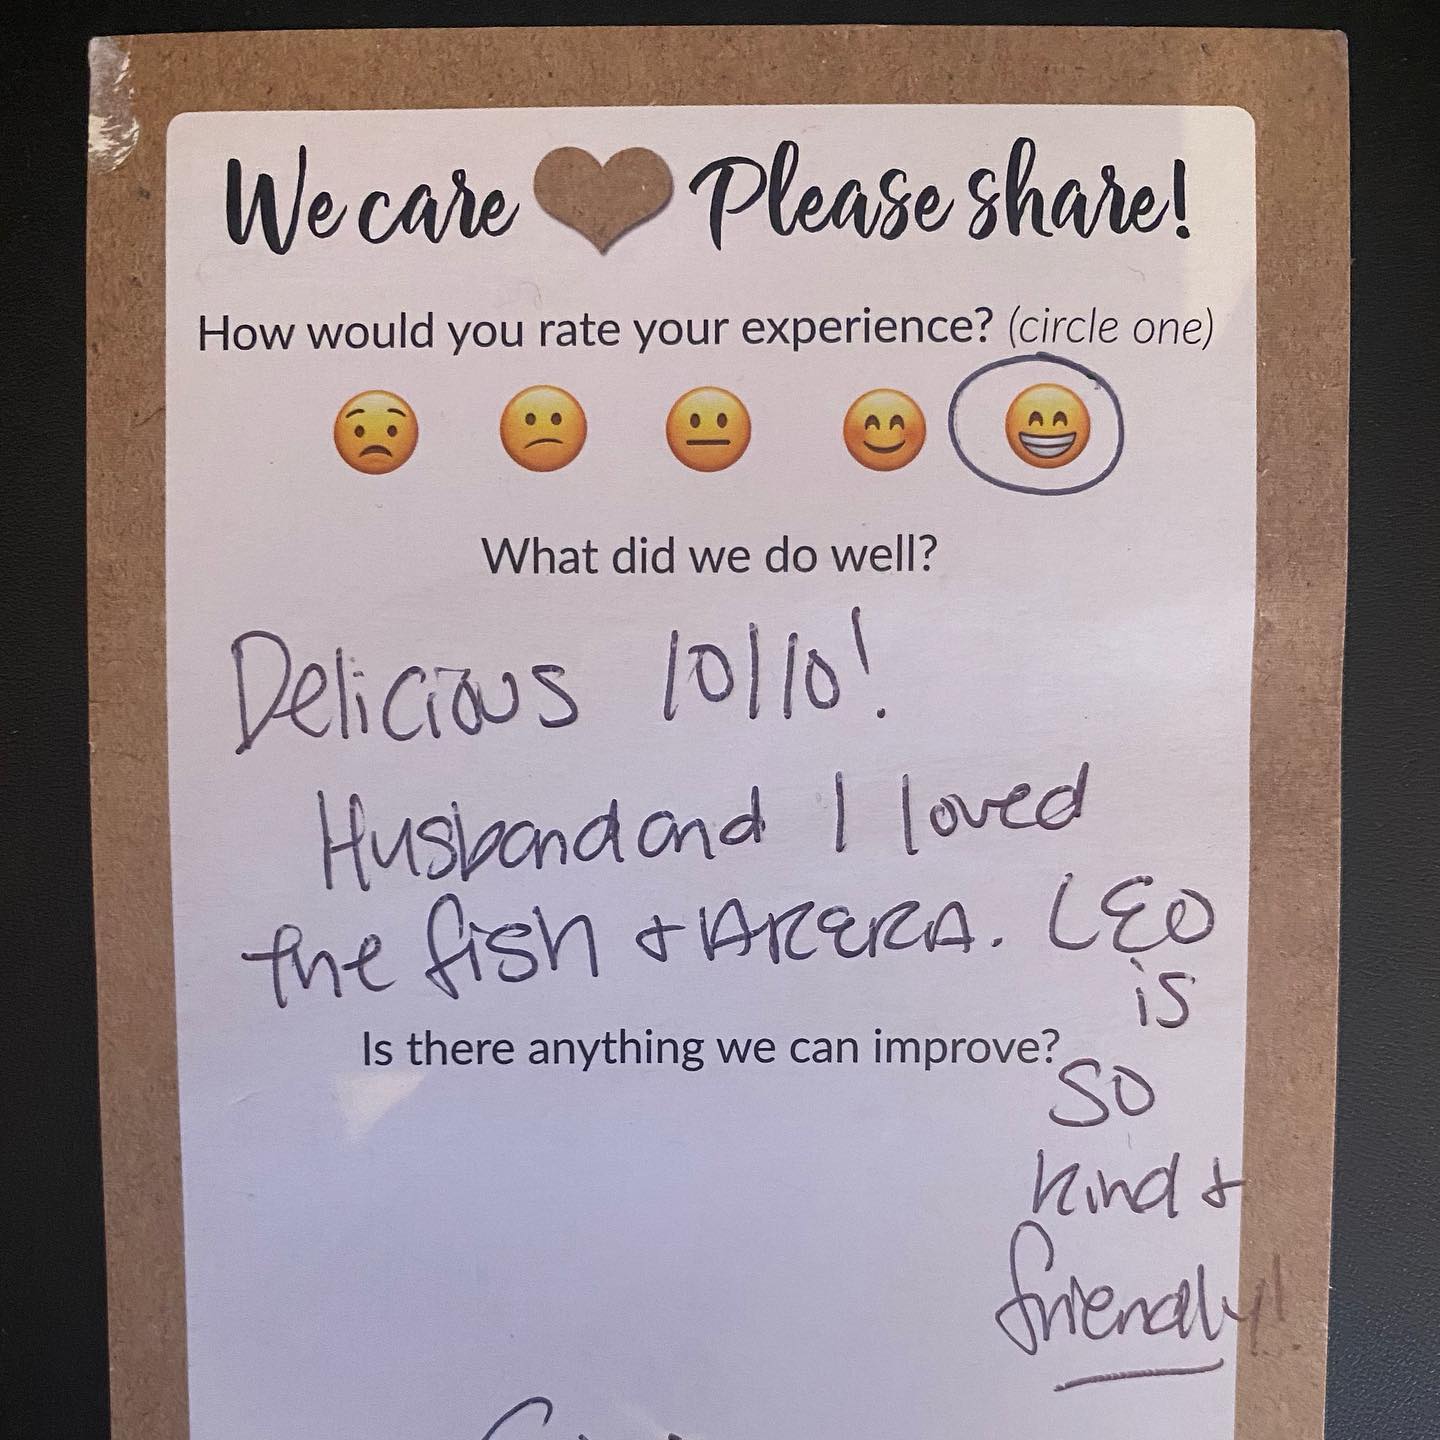 We care Please share!
How would you rate your experience? (circle one)
What did we do well?
Delicious 10/10!
Husband and I loved
the fish + ARERA. LEO
is
Is there anything we can improve?
so
kind +
friendly!